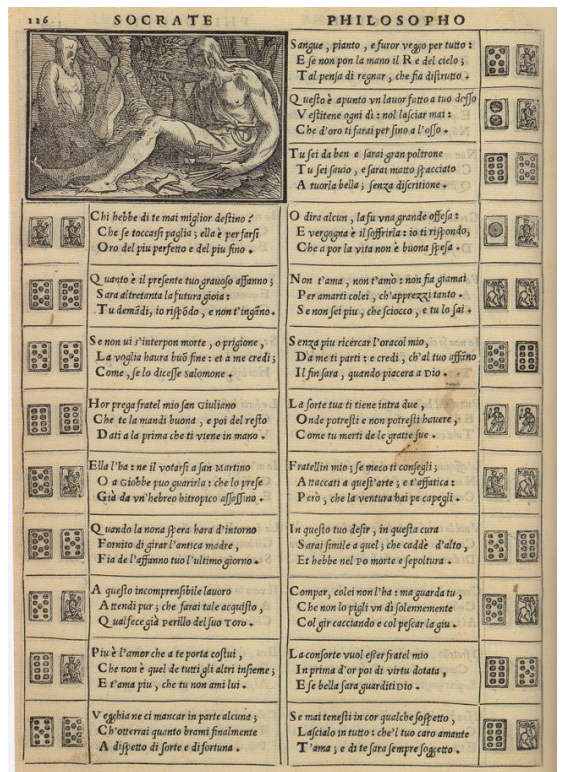 126 SOCRATE PHILOSOPHO
Chi hebbe di te mai miglior destino?
Che se toccassi paglia; ella è per farsi
Oro del piu perfetto e del piu fino.
Quanto è il presente tuo grauoso affanno;
Sara altretanta la futura gioia:
Tu demãdi, io rispõdo, e non t'ingãno.
Se non ui s'interpon morte, o prigione,
La voglia haura buõ fine: et a me credi;
Come, se lo dicesse Salomone.
Hor prega fratel mio san Giuliano
Che te la mandi buona, e poi del resto
Dati a la prima che ti viene in mano.
Ella l'ha: ne il votarsi a san Martino
O a Giobbe puo guarirla: che lo prese
Già da vn'hebreo hitropico assassino.
Quando la nona spera hara d'intorno
Fornito di girar l'antica madre,
Fia de l'affanno tuo l'ultimo giorno.
A questo incomprensibile lauoro
Attendi pur; che farai tale acquisto,
Qual fece già Perillo del suo Toro.
Piu è l'amor che a te porta costui,
Che non è quel de tutti gli altri insieme;
E t'ama piu, che tu non ami lui.
Vegghia ne ci mancar in parte alcuna;
Ch'otterrai quanto brami finalmente
A dispetto di sorte e di fortuna.
Sangue, pianto, e furor veggo per tutto:
E se non pon la mano il Re del cielo;
Tal pensa di regnar, che fia distrutto.
Questo è apunto vn lauor fatto a tuo dosso
Vestitene ogni dì: nol lasciar mai:
Che d'oro ti farai per fino a l'osso.
Tu sei da ben e sarai gran poltrone
Tu sei sauio, e sarai matto spacciato
A tuorla bella; senza discritione.
O dira alcun, la fu vna grande offesa:
E vergogna è il soffrirla: io ti rispondo,
Che a por la vita non è buona spesa.
Non t'ama, non t'amò: non fia giamai
Per amarti colei, ch'apprezzi tanto.
Se non sei piu, che sciocco, e tu lo sai.
Senza piu ricercar l'oracol mio,
Da me ti parti: e credi, ch'al tuo affãno
Il fin sara, quando piacera a Dio.
La sorte tua ti tiene intra due,
Onde potresti e non potresti hauere,
Come tu merti de le gratie sue.
Fratellin mio; se meco ti consegli;
Attaccati a quest'arte; e t'affatica:
Però, che la ventura hai pe capegli.
In questo tuo desir, in questa cura
Sarai simile a quel; che caddè d'alto,
Et hebbe nel Po morte e sepoltura.
Compar, colei non l'ha: ma guarda tu,
Che non lo pigli vn dì solennemente
Col gir cacciando e col pescar la giu.
La consorte vuol esser fratel mio
In prima d'or poi di virtu dotata,
E se bella sara guarditi Dio.
Se mai tenesti in cor qualche sospetto,
Lascialo in tutto: che'l tuo caro amante
T'ama; e di te sara sempre soggetto.